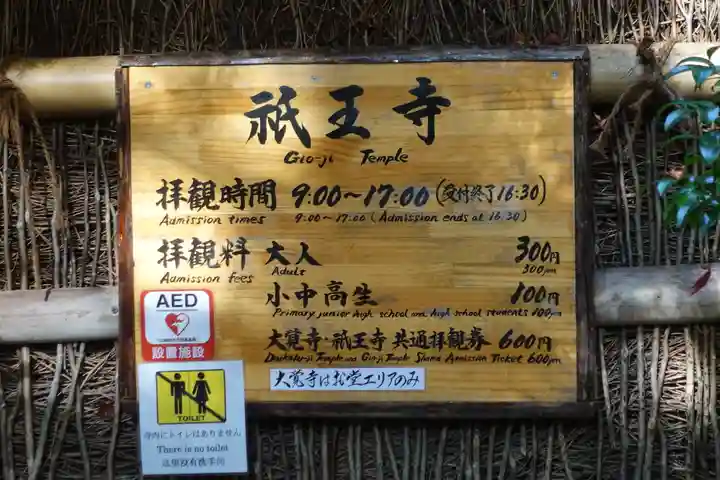 祇王寺
Gio-ji Temple
拝観時間 9:00〜17:00(受付終了16:30)
Admission times 9:00〜17:00 (Admission ends at 16:30)
拝観料 大人 300円
Admission fees Adult 300yen
小中高生 100円
Primary junior high school and high school students 100yen
大覚寺・祇王寺 共通拝観券 600円
Temple and Gio-ji Temple Admission Ticket 600yen
大覚寺はお堂エリアのみ
AED
設置施設
TOILET
寺内にトイレはありません
There is no toilet
这里没有洗手间